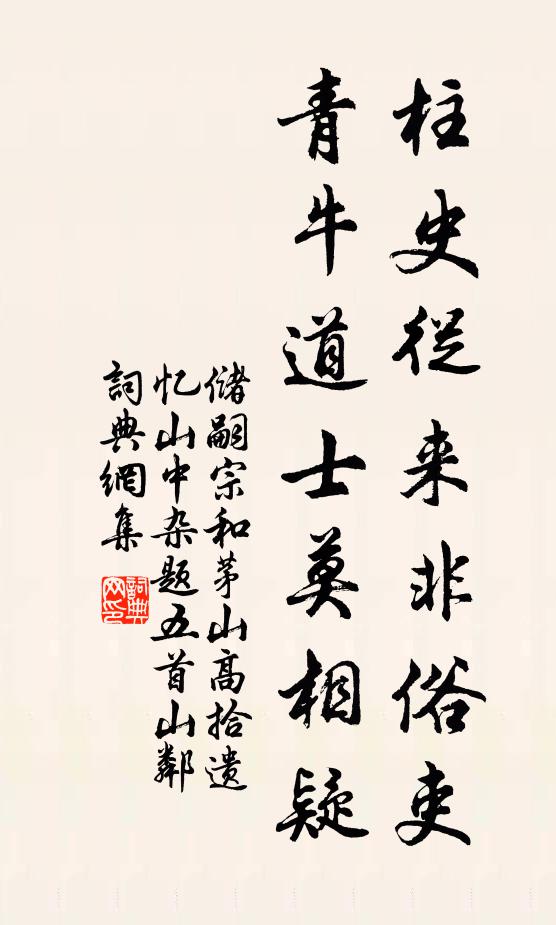 柱史從来非俗吏
青牛道士莫相疑
儲嗣宗和茅山高拾遺
忆山中杂题五首山鄰
詞典網集
詞典網印